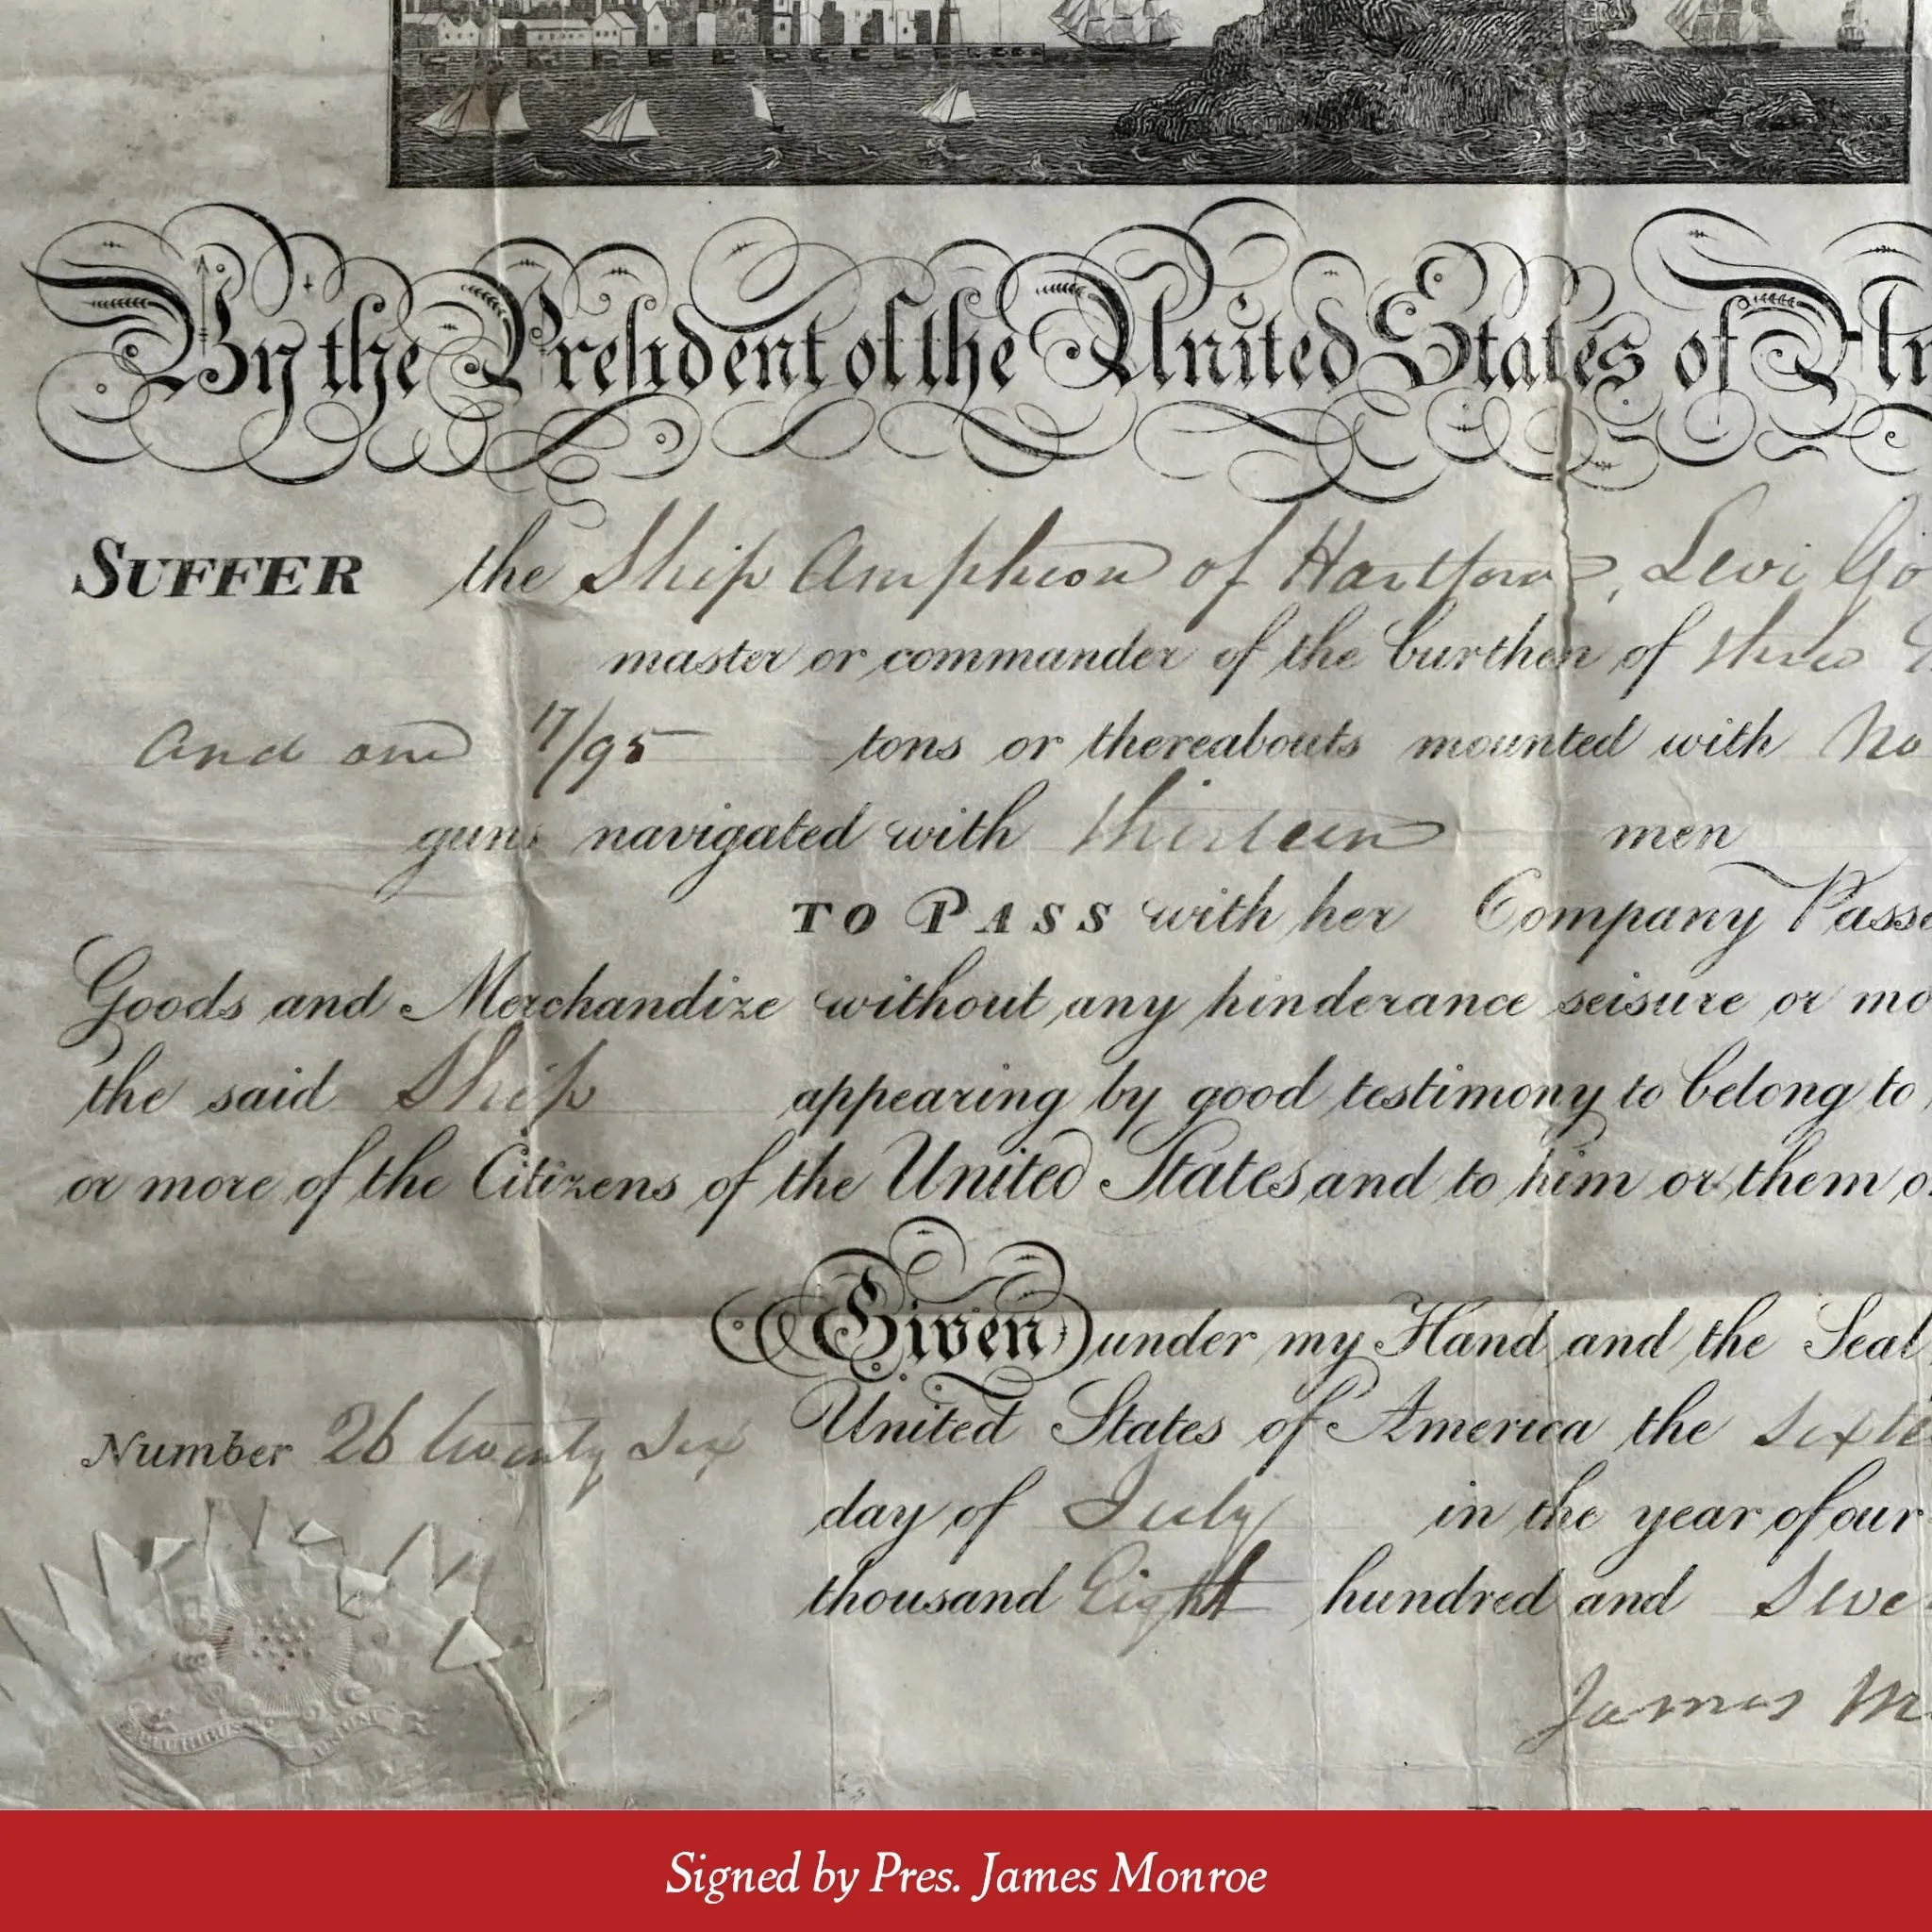 By the President of the United States of Am
SUFFER the Ship Amphion of Hartford, Levi Go
master or commander of the burthen of three
and one 17/95 tons or thereabouts mounted with No
guns navigated with thirteen men
TO PASS with her Company Passe
Goods and Merchandize without any hinderance seisure or mo
the said Ship appearing by good testimony to belong to
or more of the Citizens of the United States and to him or them o
Given under my Hand and the Seal
United States of America the sixte
Number 26 twenty Six
day of July in the year of our
thousand Eight hundred and Seve
James M
Signed by Pres. James Monroe